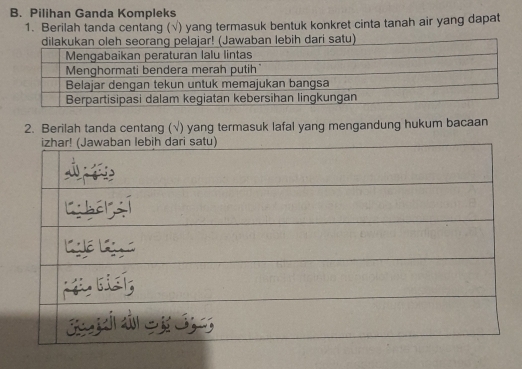 B. Pilihan Ganda Kompleks
1. Berilah tanda centang (√) yang termasuk bentuk konkret cinta tanah air yang dapat
dilakukan oleh seorang pelajar! (Jawaban lebih dari satu)
Mengabaikan peraturan lalu lintas
Menghormati bendera merah putih
Belajar dengan tekun untuk memajukan bangsa
Berpartisipasi dalam kegiatan kebersihan lingkungan
2. Berilah tanda centang (√) yang termasuk lafal yang mengandung hukum bacaan
izhar! (Jawaban lebih dari satu)
دِيْنَهُمْ لِلّٰهِ
اَجْرًا عَظِيْمًا
سَمِيْعًا عَلِيْمًا
وَاَخَذْنَا مِنْهُمْ
وَسَوْفَ يُؤْتِ اللّٰهُ الْمُؤْمِنِيْنَ